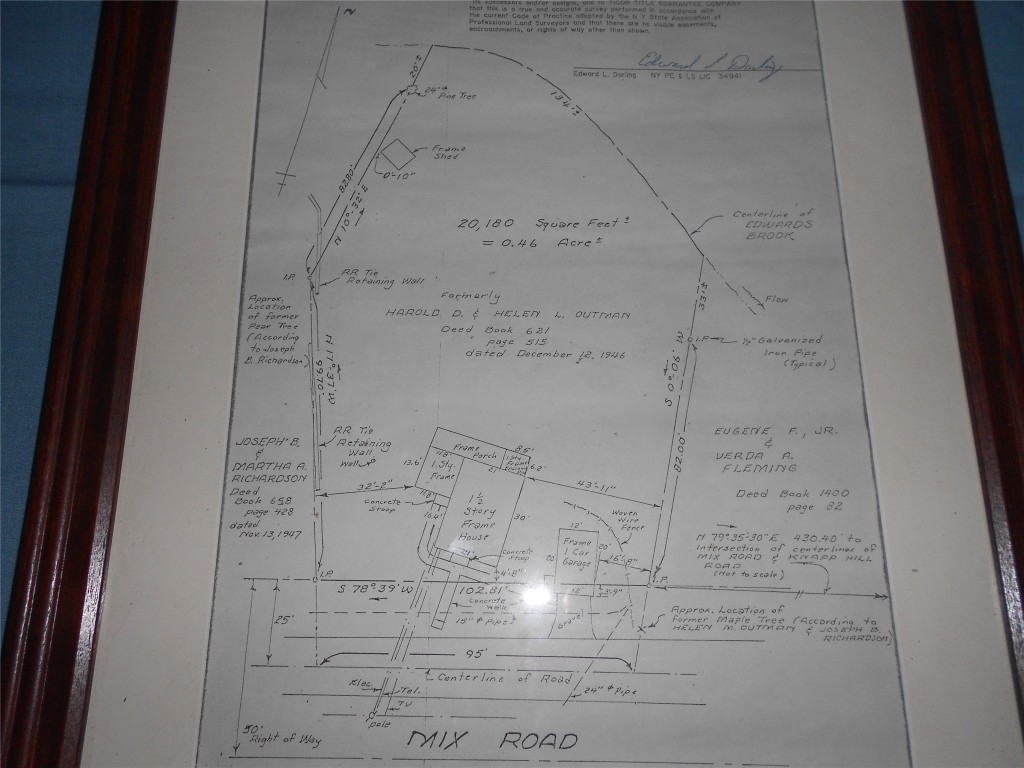 its successors and/or assigns, and to TICOR TITLE GUARANTEE COMPANY
that this is a true and accurate survey performed in accordance with
the current Code of Practice adopted by the N Y State Association of
Professional Land Surveyors and that there are no visible easements,
encroachments, or rights of way other than shown.
Edward L. Darling
Edward L. Darling NY PE & LS LIC 34941
N
20'±
24"ϕ
Pine Tree
134'±
Frame
Shed
0'-10"
82.80'
N 10°-32' E
20,180 Square Feet ±
= 0.46 Acre ±
Centerline of
EDWARDS
BROOK
I.P.
RR Tie
Retaining Wall
Flow
33'±
Approx.
Location
of former
Pear Tree
(According
to Joseph
B. Richardson)
Formerly
HAROLD D. & HELEN L. OUTMAN
Deed Book 621
page 515
dated December 12, 1946
I.P.
½" Galvanized
Iron Pipe
(Typical)
99.70'
N 17°-37' W
S 0°-06' W
82.00'
JOSEPH B.
&
MARTHA A.
RICHARDSON
Deed
Book 658
page 428
dated
Nov. 13, 1947
RR Tie
Retaining
Wall
EUGENE F., JR.
&
VERDA A.
FLEMING
Deed Book 1400
page 82
Frame
Porch
8.5'
11.8'
13.6'
1 Sty.
Frame
6.2'
32'-2"
43'-11"
Concrete
Stoop
11.8'
16.4'
1½
Story
Frame
House
30'
24'
Concrete
Stoop
4'-8"
Woven
Wire
Fence
12'
Frame
1 Car
Garage
20'
20'
16'-8"
12'
3.9'
N 79°-35'-30" E 430.40' to
intersection of centerlines of
MIX ROAD & KNAPP HILL
ROAD
(Not to scale)
I.P.
I.P.
S 78°-39' W
102.81'
Concrete
Walk
15"ϕ Pipe
Gravel
Approx. Location of
former Maple Tree (According to
HELEN M. OUTMAN & JOSEPH B.
RICHARDSON)
25'
95'
Centerline of Road
Elec.
Tel.
TV
pole
24"ϕ Pipe
50'
Right of Way
MIX ROAD